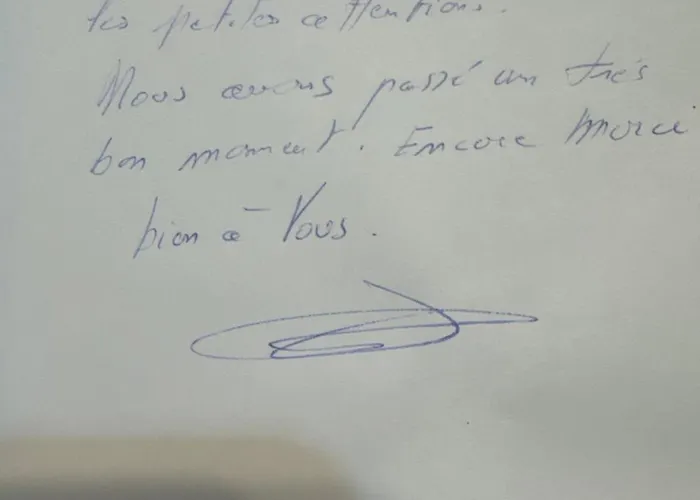 les petites attentions.
Nous avons passé un très
bon moment. Encore Merci
bien à Vous.